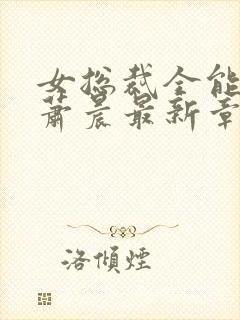 女总裁全能
萧晨最新章
洛倾烟